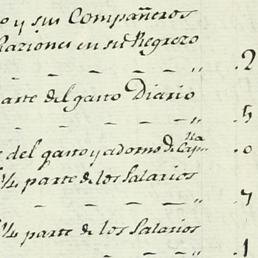 o y sus Compañeros
Raziones en su Regrezo
.2
arte del gasto Diario
.5
te del gasto y adorno de Cap.lla
.0
1/4 parte de los Salarios
.7
1/4 parte de los Salarios
.1